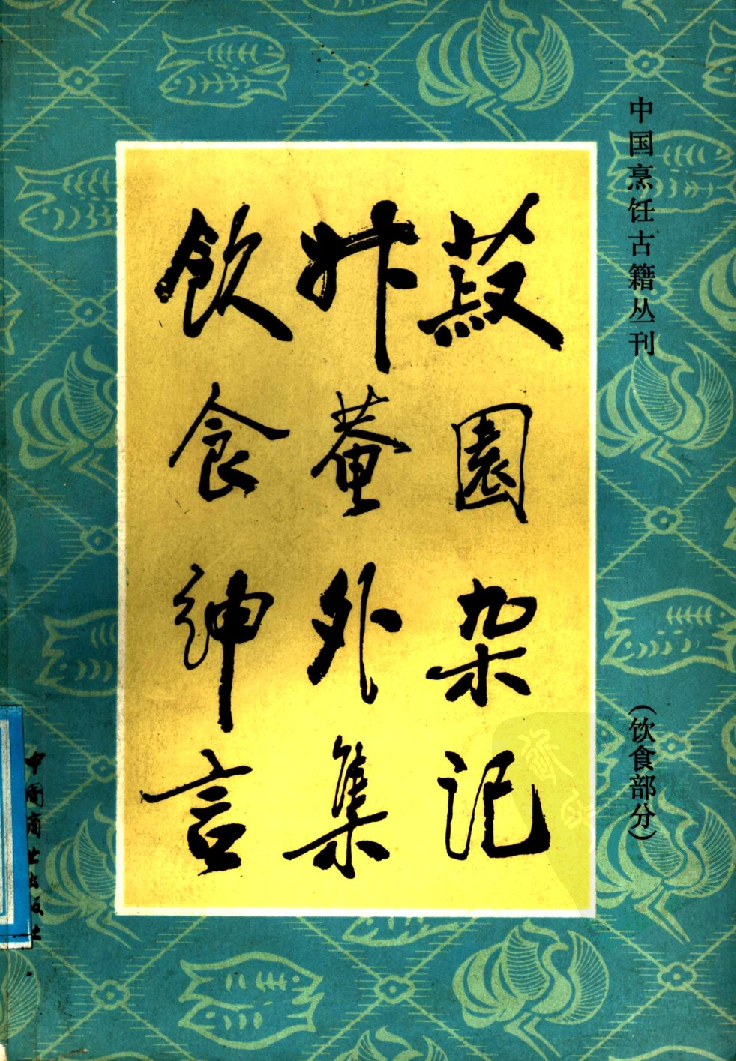 中国烹饪古籍丛刊
(饮食部分)
菽園杂记
升菴外集
飲食紳言
中国商业出版社